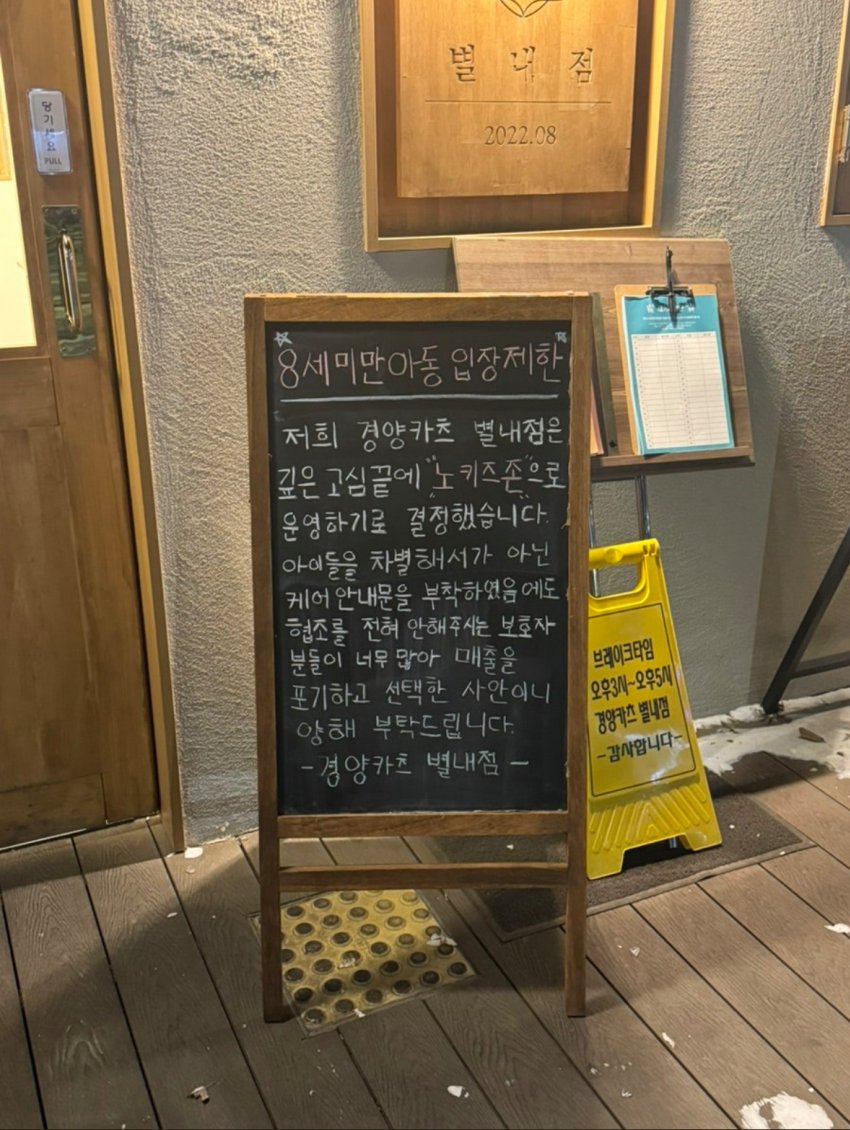 별내점
2022.08
당기세요
PULL
8세미만아동 입장제한
저희 경양카츠 별내점은
깊은고심끝에 "노키즈존"으로
운영하기로 결정했습니다.
아이들을 차별해서가 아닌
케어안내문을 부착하였음에도
협조를 전혀 안해주시는 보호자
분들이 너무많아 매출을
포기하고 선택한 사안이니
양해 부탁드립니다.
-경양카츠 별내점-
브레이크타임
오후3시~오후5시
경양카츠 별내점
-감사합니다-